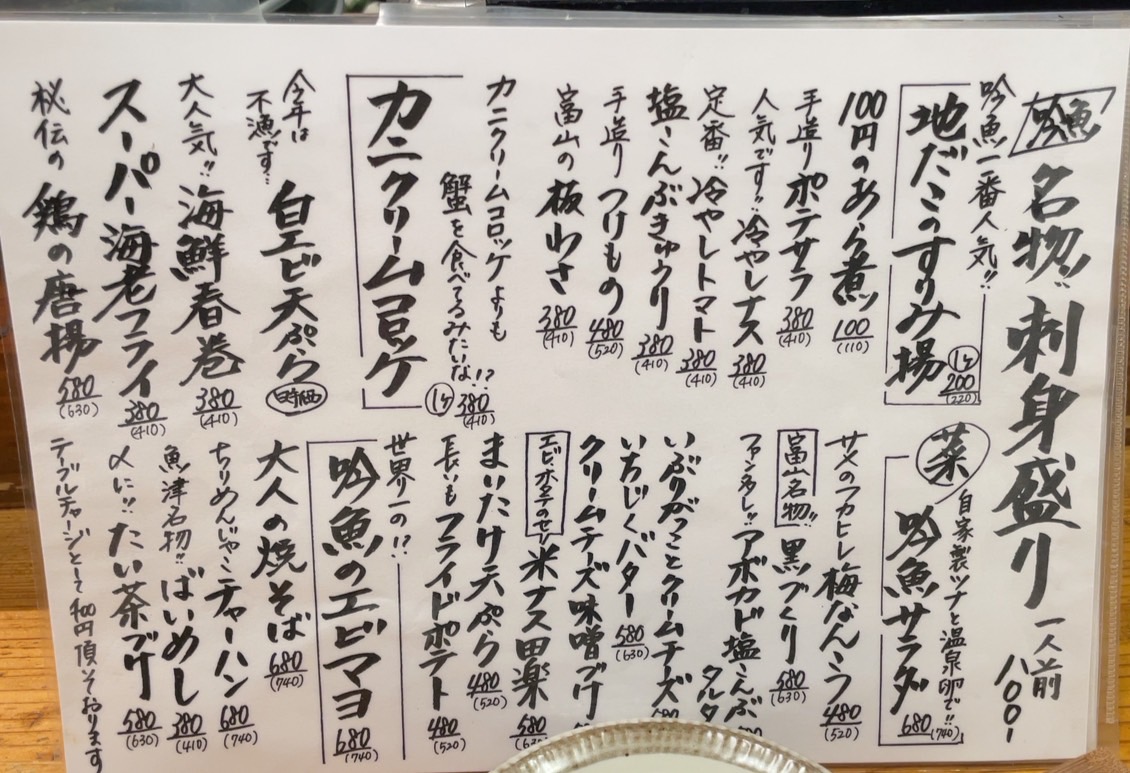 吟魚 名物!! 刺身盛り 一人前
吟魚一番人気!!
地だこのすり み揚 1ケ 200 (220)
100円のあら煮 100 (110)
手造り ポテサラ 380 (410)
人気です!! 冷やしナス 380 (410)
定番!! 冷やしトマト 380 (410)
塩こんぶきゅうり 380 (410)
手造り つけもの 480 (520)
富山の板わさ 380 (410)
カニクリームコロッケよりも
蟹を食べてるみたいな!?
カニクリームコロッケ 1ケ 380 (410)
今年は
不漁です… 白エビ天ぷら 時価
大人気!! 海鮮春巻 380 (410)
スーパー海老フライ 380 (410)
秘伝の 鶏の唐揚 580 (630)
菜 自家製ツナと温泉卵で!!
吟魚サラダ 680 (740)
サメのフカヒレ梅なんこつ 480 (520)
富山名物!! 黒づくり 580 (630)
ファン多し!! アボカド塩こんぶ
タルタル
いぶりがっことクリームチーズ
いちじくバター 580 (630)
クリームチーズ味噌づけ
エビ・ホタテのせ!! 米ナス田楽 580
まいたけ天ぷら 480 (520)
長いもフライドポテト 480 (520)
世界一の!?
吟魚のエビマヨ 680 (740)
大人の焼そば 680 (740)
ちりめんじゃこチャーハン 680 (740)
魚津名物!! ばいめし 380 (410)
〆に!! たい茶づけ 580 (630)
テーブルチャージとして 円頂いております